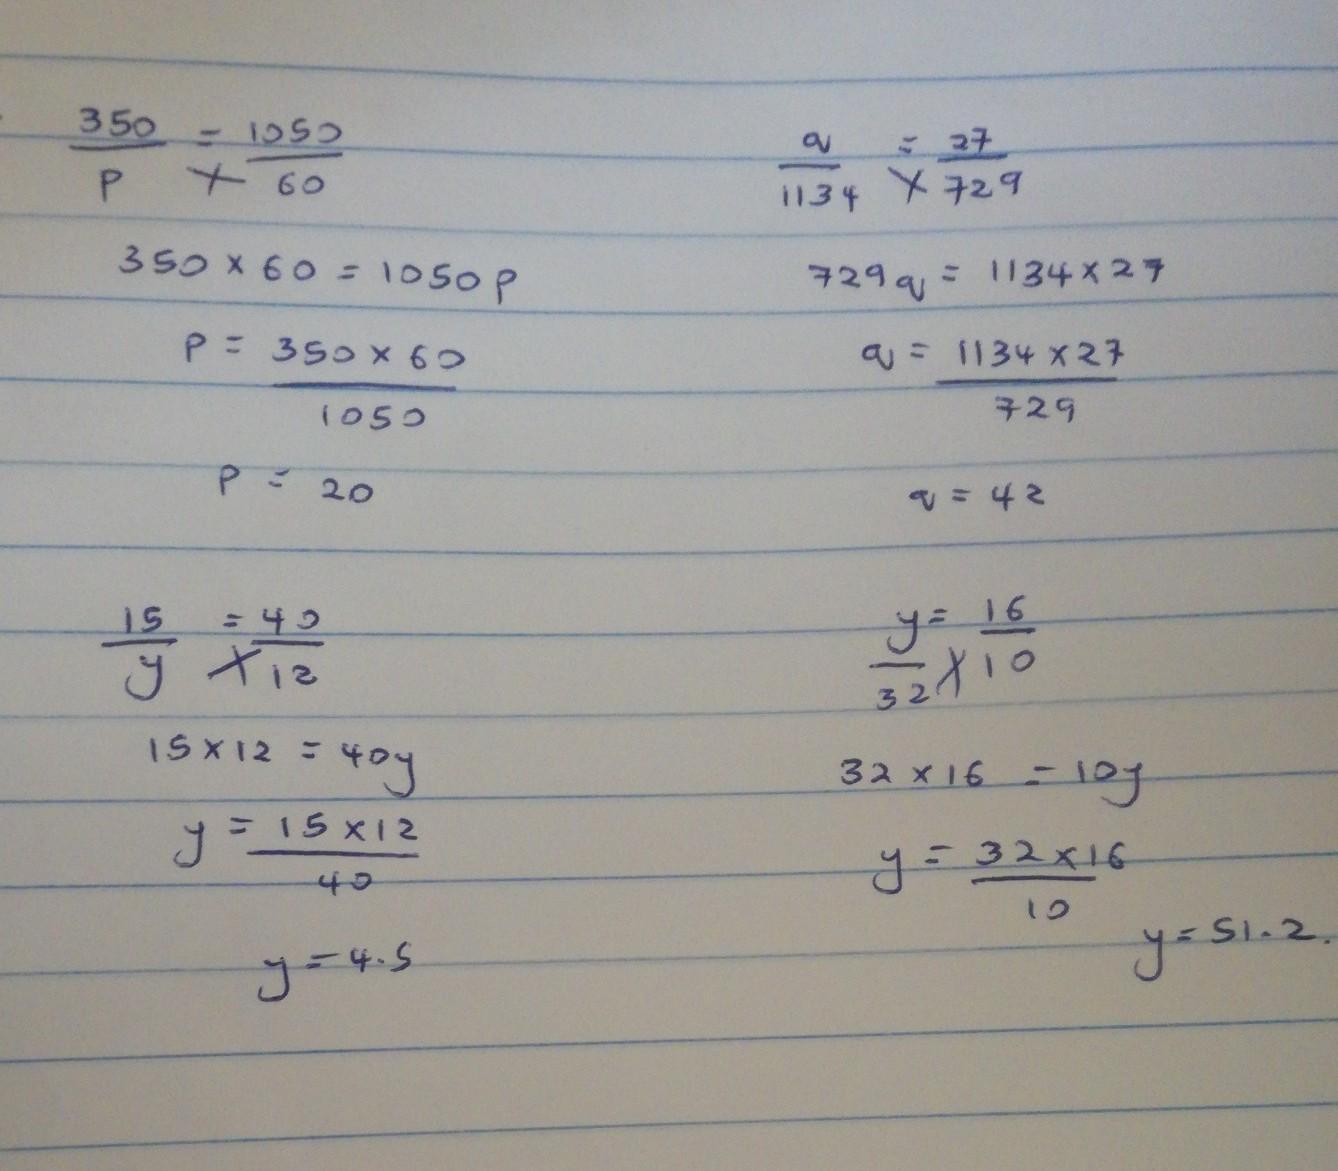 350/p = 1050/60
350 × 60 = 1050p
p = 350 × 60 / 1050
p = 20
q/1134 = 27/729
729q = 1134 × 27
q = 1134 × 27 / 729
q = 42
15/y = 40/12
15 × 12 = 40y
y = 15 × 12 / 40
y = 4.5
y/32 = 16/10
32 × 16 = 10y
y = 32 × 16 / 10
y = 51.2.